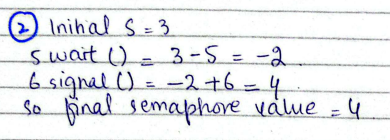 ② Inihal S = 3
5 wait () = 3-5 = -2
6 signal () = -2 +6 = 4
so final semaphore value = 4